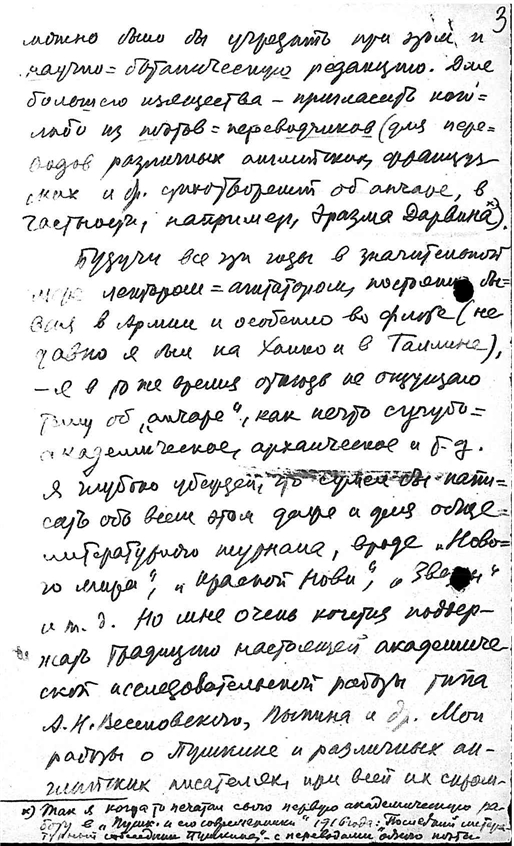 3
можно было бы учредить при этом и
научно=ботаническую редакцию. Для
большего изящества – пригласить кого=
либо из поэтов=переводчиков (для пере=
водов различных английских, француз-
ских и др. стихотворений об анчаре, в
частности, например, Эразма Дарвина x)).
Будучи все эти годы в значительной
мере лектором=агитатором, постоянно бы=
вая в Армии и особенно во флоте (не
давно я был на Ханко и в Таллине),
– я в то же время отнюдь не ощущаю
тему об „анчаре", как нечто сугубо=
академическое, архаическое и т.д.
Я глубоко убежден, что сумел бы напи=
сать обо всем этом даже и для обще=
литературного журнала, вроде „Ново=
го мира", „Красной Нови", „Звезды"
и т. д. Но мне очень хочется поддер-
жать традицию настоящей академиче-
ской исследовательской работы типа
А.Н. Веселовского, Пыпина и др. Мои
работы о Пушкине и различных ан-
глийских писателях, при всей их скром-
x) Так я когда то печатал свою первую академическую ра-
боту в „Пушк. и его современники" 1916 года: „Последний литера
турный собеседник Пушкина" – с переводами